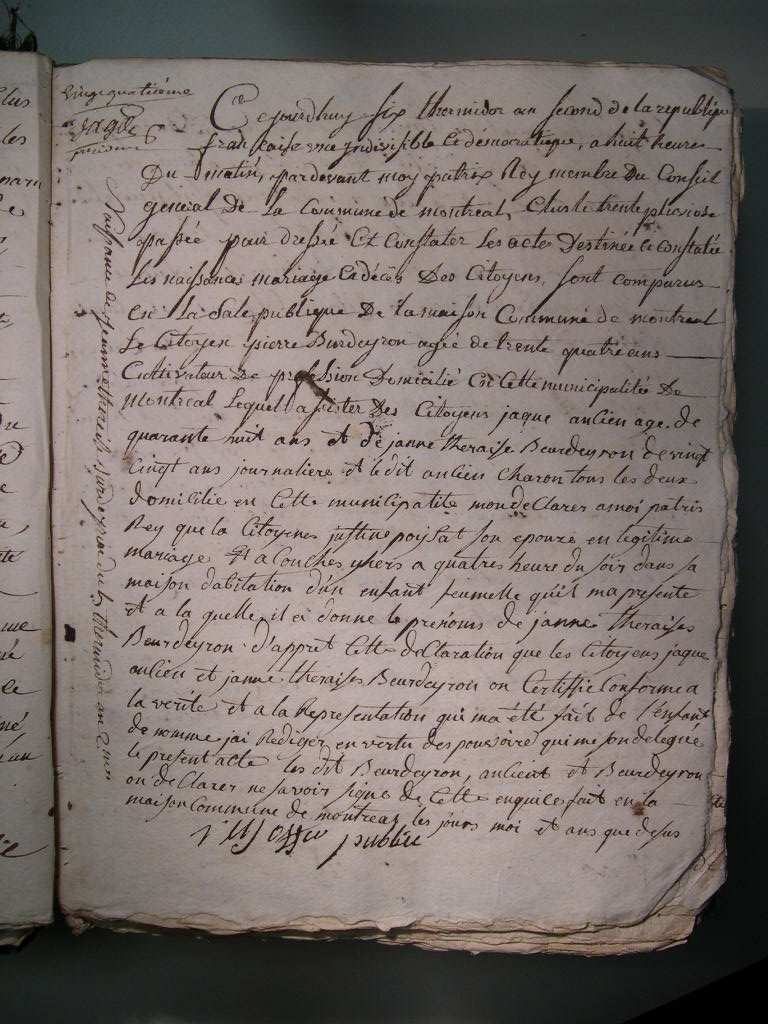 vingt quatrieme
page
Naissance de jeanne theraise Burdeyron du 5 thermidor an 2 me
Ce jourdhuy six thermidor an second de la republique
francaise une indivisible et democratique, a huit heures
Du matin, pardevant moy patrix Rey membre Du Conseil
general De La Commune de montreal, Elus le trente pluviose
passée pour dressée Et Constater Les actes Destinée a constatée
Les naissances mariage et décès Des Citoyens, sont comparus
en La Sale publique De la maison Commune de montreal
Le Citoyen pierre Burdeyron agée de trente quatre ans
Cultivateur De profession Domicilié en Cette municipalitée De
montreal Lequel assister Des Citoyens jaque anlien age de
quarante huit ans et de janne theraise Beurdeyron de vingt
cingt ans journaliere et ledit anlien charon tous les deux
domicilie en Cette municipalite mon declarer a moi patris
Rey que la Citoyenes justine poissat son epouze en legitime
mariage et a Couches yhers a quatres heure du soir dans sa
maison dabitation d'un enfant feumelle quil ma presente
et a la quelle il ei donne le prenoms de janne theraises
Beurdeyron d'appret Cette declaration que les Citoyens jaque
anlien et janne theraises Beurdeyron on Certiffie Conforme a
la verite et a la Representation qui ma été fait de l'enfant
de nomme jai Rediger en vertu des pouvoire qui me son delegué
le present acte les dit Beurdeyron, anlient et Beurdeyron
on declarer ne savoir signe de Cette enquiles fait en la
maison Commune de montreal les jours moi et ans que desus
publie